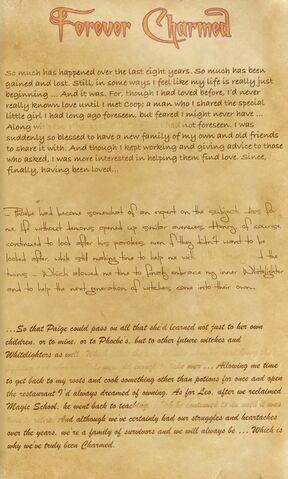 Forever Charmed
So much has happened over the last eight years. So much has been
gained and lost. Still, in some ways I feel like my life is really just
beginning ... And it was. For, though I had loved before, I'd never
really known love until I met Coop; a man who I shared the special
little girl I had long ago foreseen, but feared I might never have ...
Along with had not foreseen. I was
suddenly so blessed to have a new family of my own and old friends
to share it with. And though I kept working and giving advice to those
who asked, I was more interested in helping them find love. Since,
finally, having been loved...
... Phoebe had become somewhat of an expert on the subject. As for
me, life without demons opened up similar avenues. Henry, of course,
continued to look after his parolees, even if they didn't want to be
looked after, while still making time to help me with d the
twins ... Which allowed me time to finally embrace my inner Whitelighter
and to help the next generation of witches come into their own...
...So that Paige could pass on all that she'd learned not just to her own
children, or to mine, or to Phoebe's, but to other future witches and
Whitelighters as well.
over ... Allowing me time
to get back to my roots and cook something other than potions for once and open
the restaurant I'd always dreamed of owning. As for Leo, after we reclaimed
Magic School, he went back to teaching, he continued to do until it was
And although we've certainly had our struggles and heartaches
over the years, we're a family of survivors and we will always be ... Which is
why we've truly been Charmed.